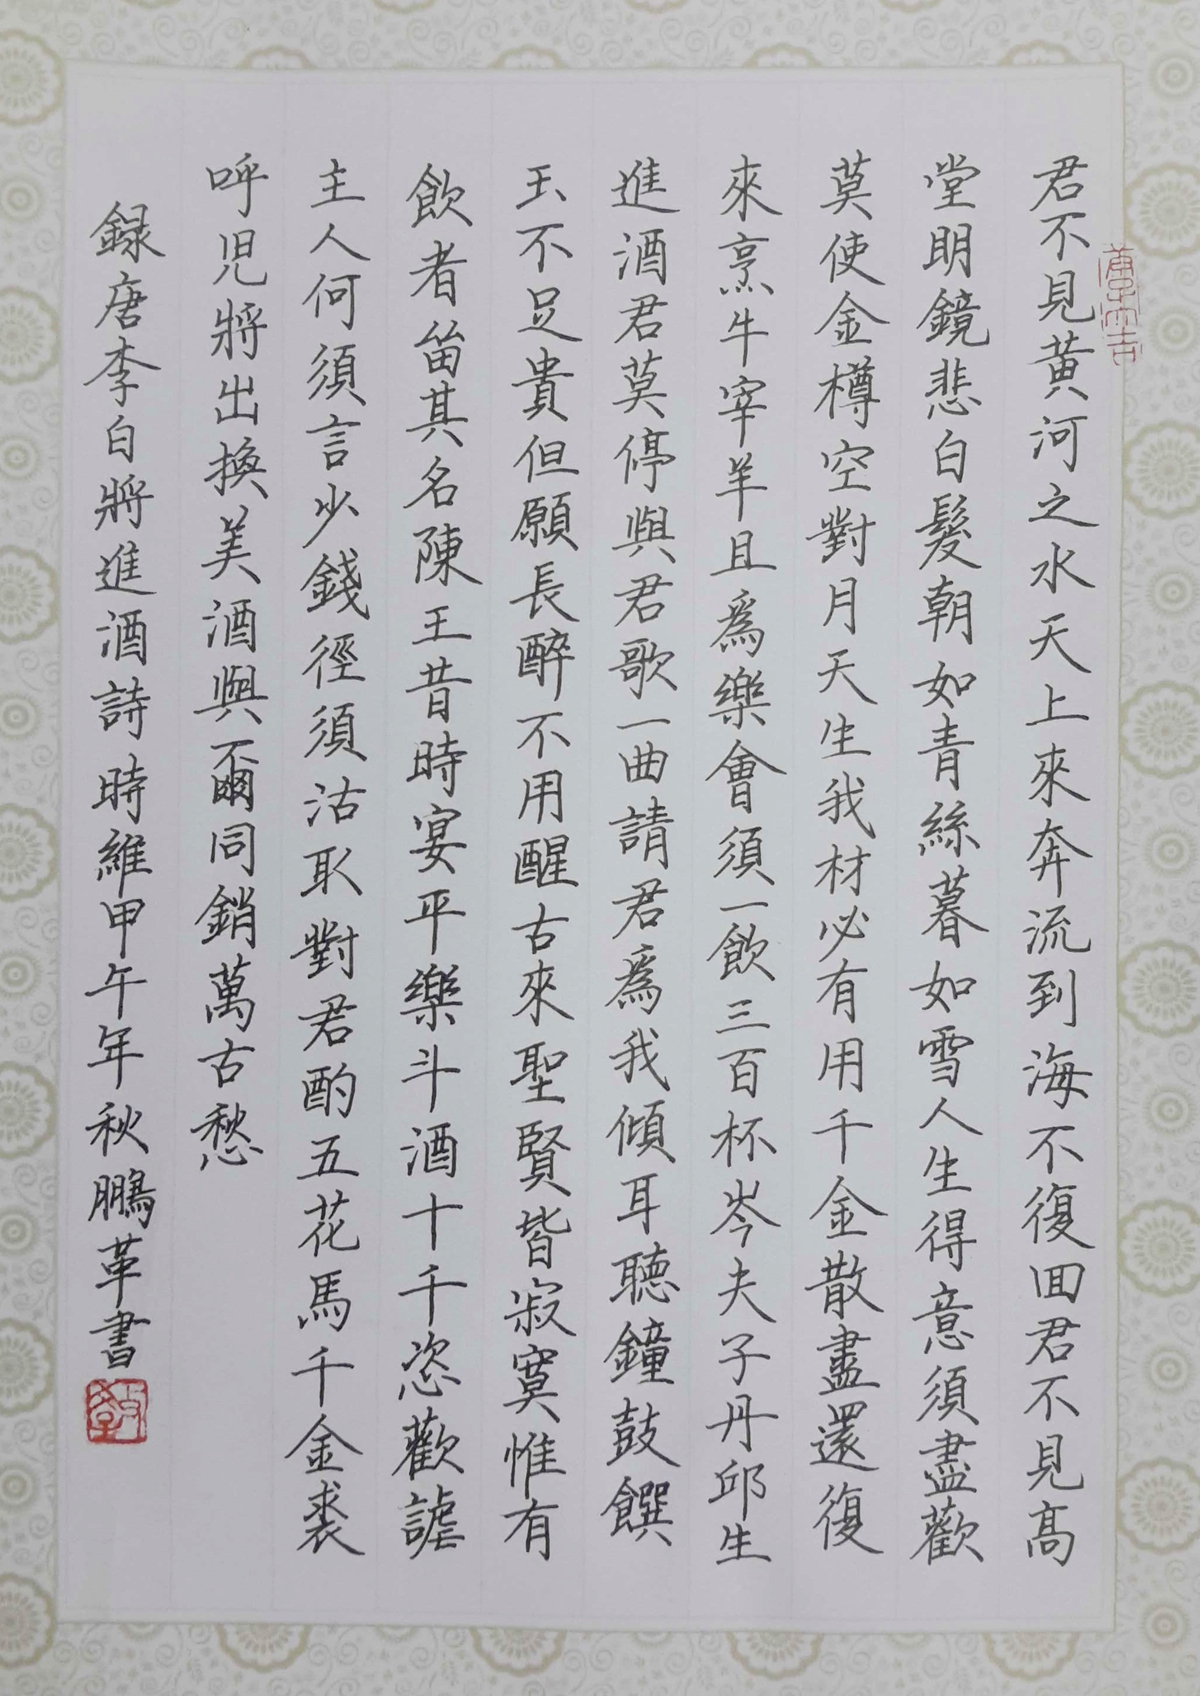 君不見黃河之水天上來奔流到海不復回君不見高
堂明鏡悲白髮朝如青絲暮如雪人生得意須盡歡
莫使金樽空對月天生我材必有用千金散盡還復
來烹牛宰羊且爲樂會須一飲三百杯岑夫子丹邱生
進酒君莫停與君歌一曲請君爲我傾耳聽鐘鼓饌
玉不足貴但願長醉不用醒古來聖賢皆寂寞惟有
飲者留其名陳王昔時宴平樂斗酒十千恣歡謔
主人何須言少錢徑須沽取對君酌五花馬千金裘
呼兒將出換美酒與爾同銷萬古愁
録唐李白將進酒詩時維甲午年秋鵬革書